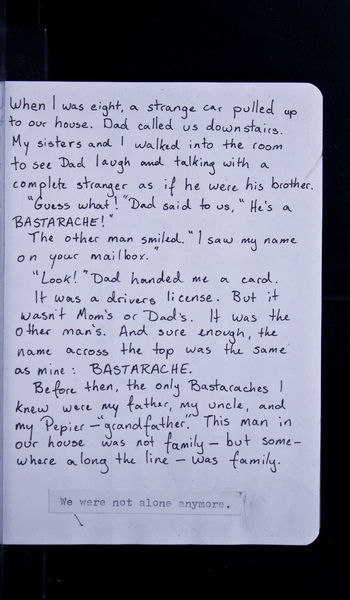 When I was eight, a strange car pulled up
to our house. Dad called us downstairs.
My sisters and I walked into the room
to see Dad laugh and talking with a
complete stranger as if he were his brother.
"Guess what!" Dad said to us, "He's a
BASTARACHE!"
The other man smiled. "I saw my name
on your mailbox."
"Look!" Dad handed me a card.
It was a drivers license. But it
wasn't Mom's or Dad's. It was the
other man's. And sure enough, the
name across the top was the same
as mine: BASTARACHE.
Before then, the only Bastaraches I
knew were my father, my uncle, and
my Pepier – "grandfather." This man in
our house was not family – but some-
where along the line – was family.
We were not alone anymore.